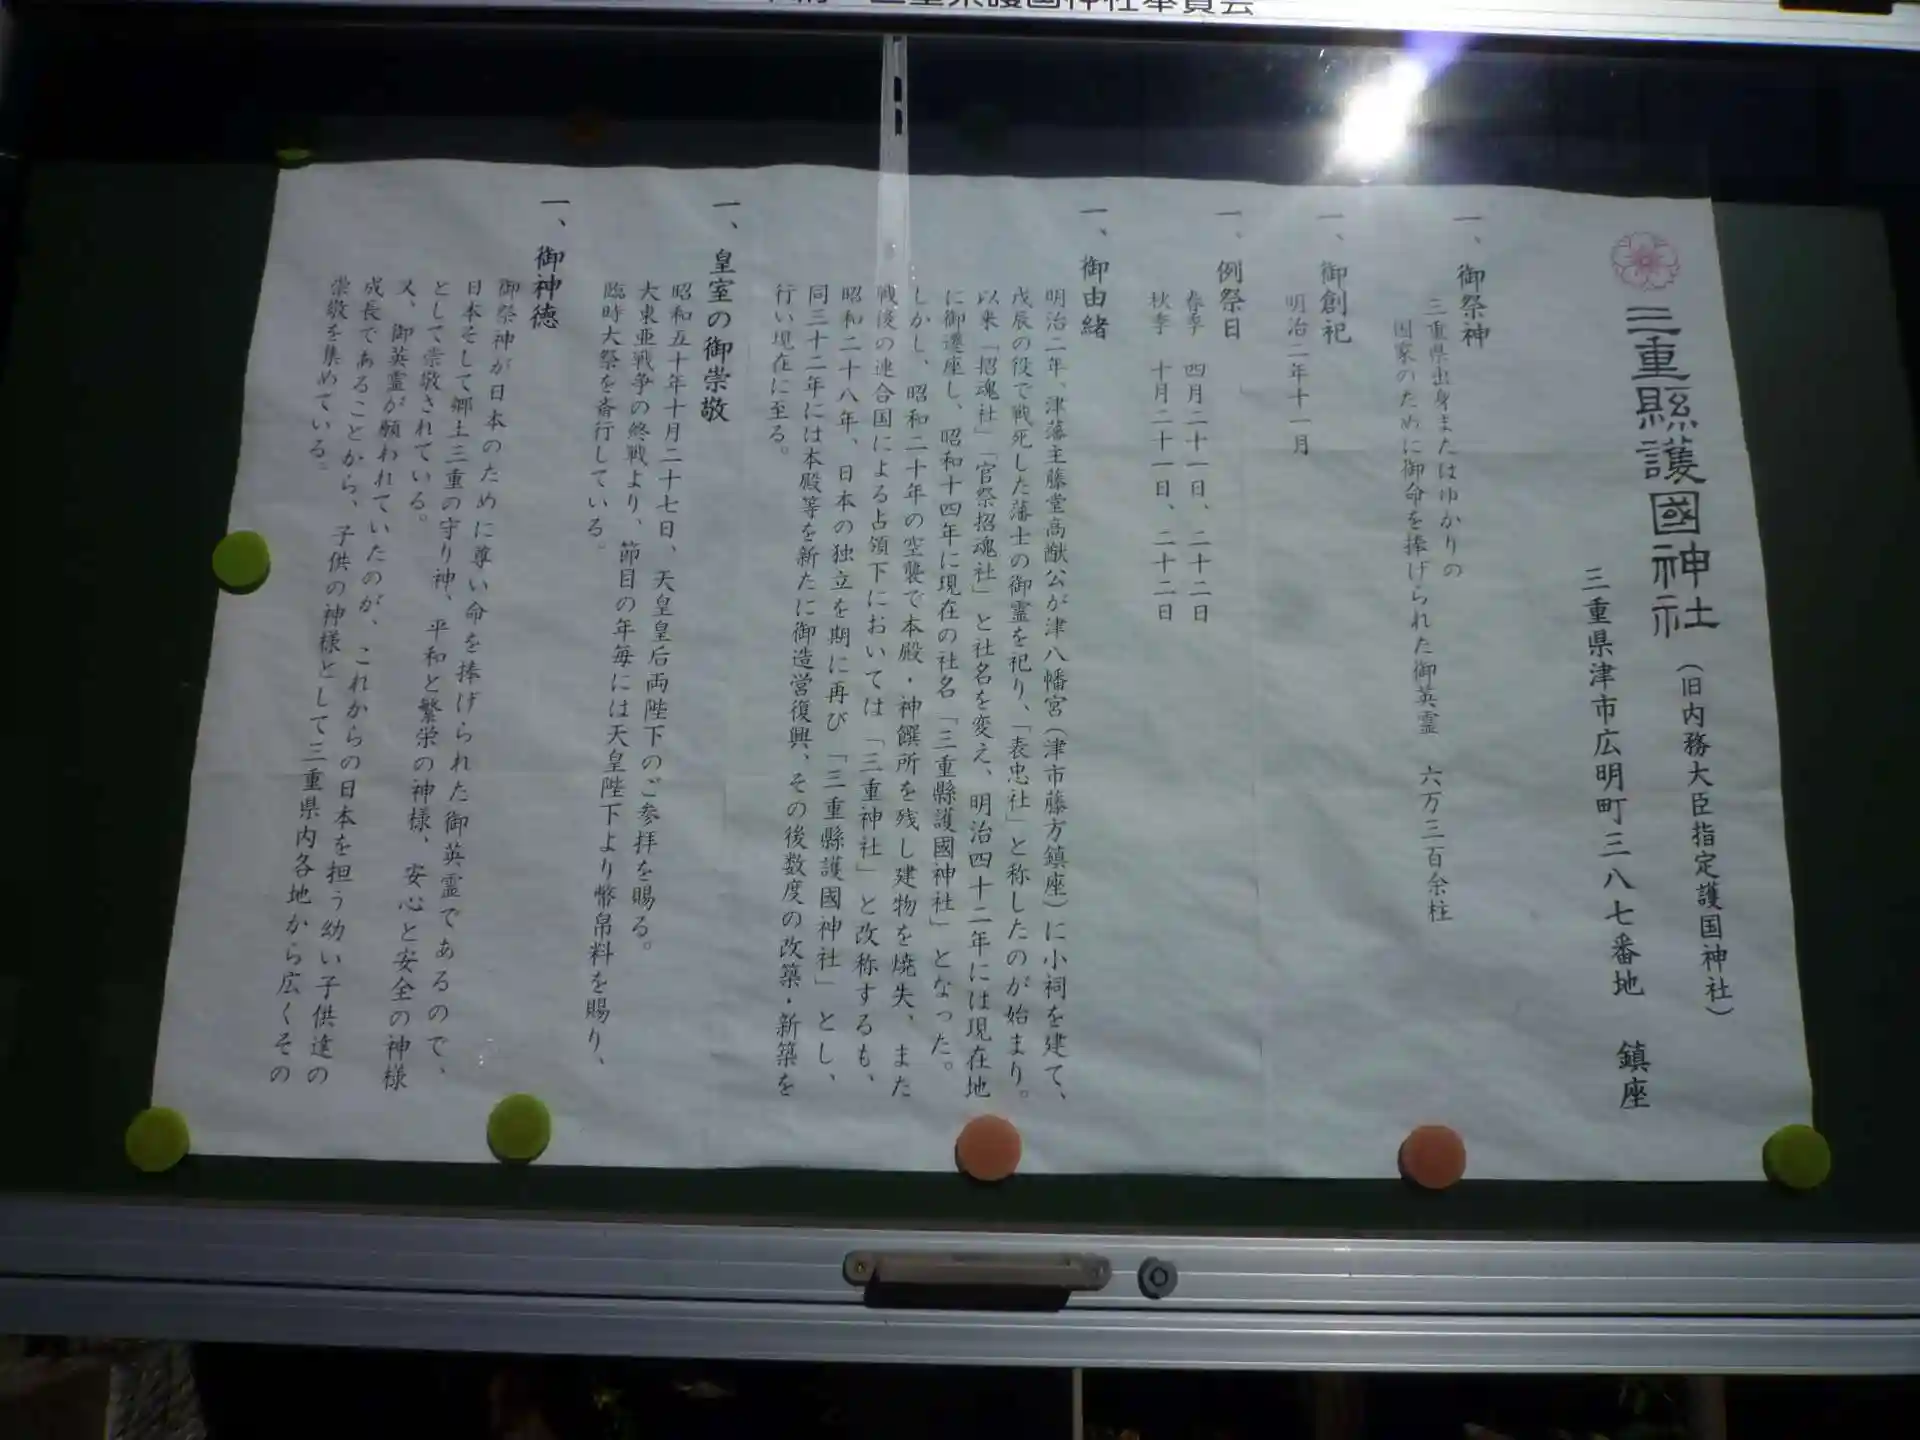 三重県護國神社奉賛会
三重縣護國神社（旧内務大臣指定護国神社）
三重県津市広明町三八七番地　鎮座
一、御祭神
三重県出身またはゆかりの
国家のために御命を捧げられた御英霊　六万三百余柱
一、御創祀
明治二年十一月
一、例祭日
春季　四月二十一日、二十二日
秋季　十月二十一日、二十二日
一、御由緒
明治二年、津藩主藤堂高猷公が津八幡宮（津市藤方鎮座）に小祠を建て、
戊辰の役で戦死した藩士の御霊を祀り、「表忠社」と称したのが始まり。
以来「招魂社」「官祭招魂社」と社名を変え、明治四十二年には現在地
に御遷座し、昭和十四年に現在の社名「三重縣護國神社」となった。
しかし、昭和二十年の空襲で本殿・神饌所を残し建物を焼失、また
戦後の連合国による占領下においては「三重神社」と改称するも、
昭和二十八年、日本の独立を期に再び「三重縣護國神社」とし、
同三十二年には本殿等を新たに御造営復興、その後数度の改築・新築を
行い現在に至る。
一、皇室の御崇敬
昭和五十年十月二十七日、天皇皇后両陛下のご参拝を賜る。
大東亜戦争の終戦より、節目の年毎には天皇陛下より幣帛料を賜り、
臨時大祭を斎行している。
一、御神徳
御祭神が日本のために尊い命を捧げられた御英霊であるので、
日本そして郷土三重の守り神、平和と繁栄の神様、安心と安全の神様
として崇敬されている。
又、御英霊が願われていたのが、これからの日本を担う幼い子供達の
成長であることから、子供の神様として三重県内各地から広くその
崇敬を集めている。